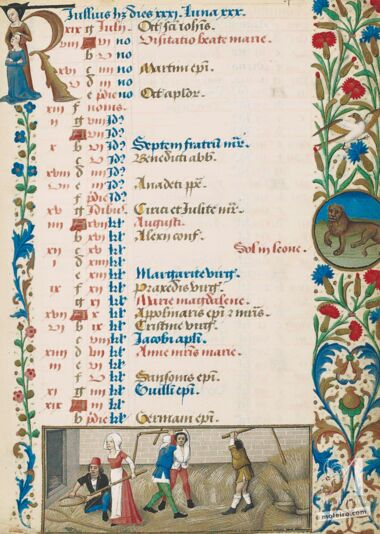 Julius hz dies xxxi. Luna xxx.
xix g Julii. Oct. sci iohis.
viii A vi no Visitatio beate marie.
b v no
xvi c iiii no Martini epi.
v d iii no
e pdie no Oct. aplor.
xiii f nonis.
ii g viii Id?
A vii Id?
x b vi Id? Septem fratru mr.
c v Id? Benedicti abb.
xviii d iiii Id?
vii e iii Id? Anacleti pp.
f pdie Id?
xv g Idibus. Cirici et Iulite mr.
iiii A xvii kl Augusti.
b xvi kl Alexii conf.
xii c xv kl Sol in leone.
i d xiiii kl
e xiii kl Margarite virg.
ix f xii kl Praxedis virg.
g xi kl Marie magdalene.
xvii A x kl Apolinaris epi z mris.
vi b ix kl Cristine virg.
c viii kl Jacobi apli.
xiiii d vii kl Anne mris marie.
iii e vi kl
f v kl Sansonis epi.
xi g iiii kl Guilli epi.
xix A iii kl
b pdie kl Germani epi.
M
moleiro.com